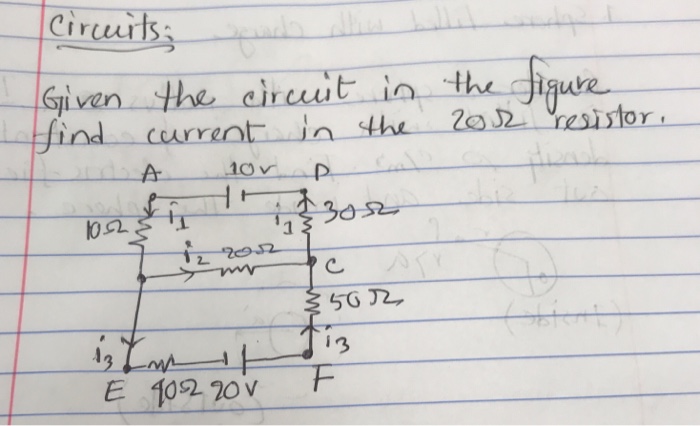 Circuits:
Given the circuit in the figure
find current in the 20Ω resistor.
A 10v D
10Ω i1 i1 30Ω
i2 20Ω C
50Ω
i3 i3
E 40Ω 20V F